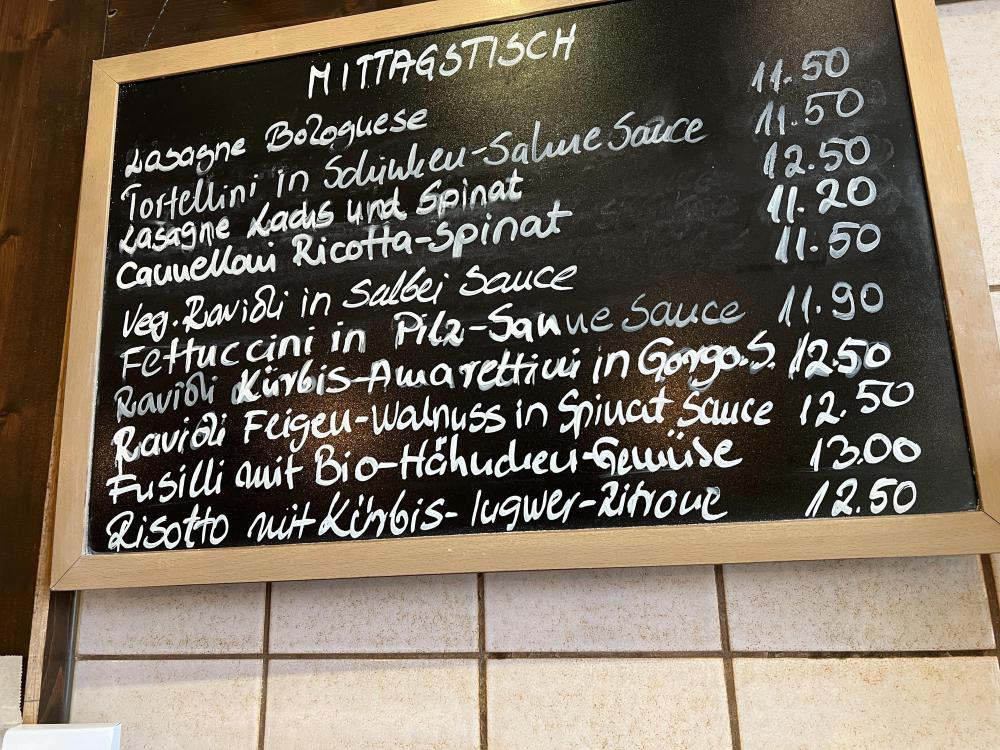 MITTAGSTISCH
Lasagne Bolognese 11.50
Tortellini in Schinken-Sahne Sauce 11.50
Lasagne Lachs und Spinat 12.50
Cannelloni Ricotta-Spinat 11.20
Veg. Ravioli in Salbei Sauce 11.50
Fettuccini in Pilz-Sahne Sauce 11.90
Ravioli Kürbis-Amarettini in Gorgo.S. 12.50
Ravioli Feigen-Walnuss in Spinat Sauce 12.50
Fusilli mit Bio-Hähnchen-Gemüse 13.00
Risotto mit Kürbis-Ingwer-Zitrone 12.50